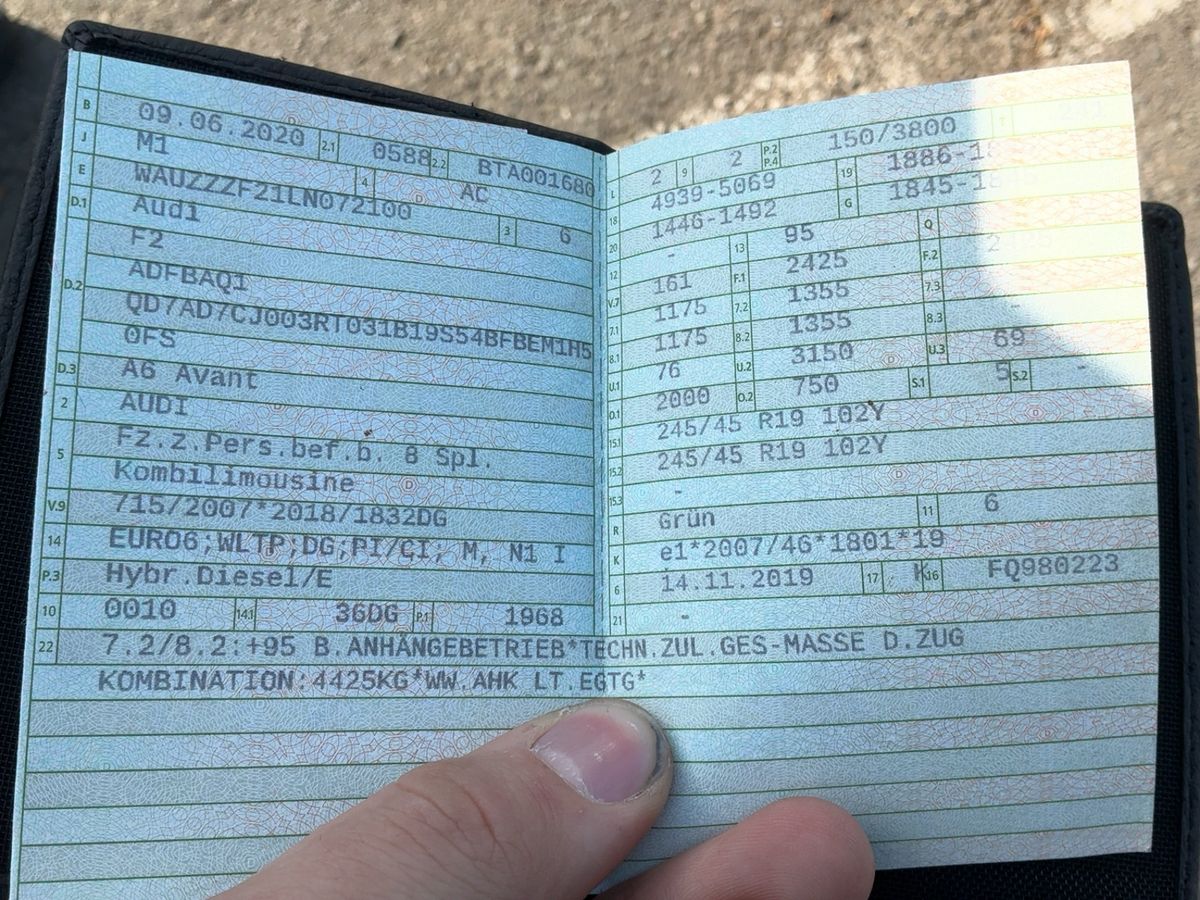 B 09.06.2020 2.1 0588 2.2 BTA001680
J M1 4 AC
E WAUZZZF21LN072100 3 6
D.1 Audi
D.2 F2
ADFBAQ1
QD7AD7CJ003RT031B19S54BFBEM1H5
0FS
D.3 A6 Avant
2 AUDI
5 Fz.z.Pers.bef.b. 8 Spl.
Kombilimousine
V.9 715/2007*2018/1832DG
14 EURO6;WLTP;DG;PI/CI; M, N1 I
P.3 Hybr.Diesel/E
10 0010 14.1 36DG P.1 1968
22 7.2/8.2:+95 B.ANHÄNGEBETRIEB*TECHN.ZUL.GES-MASSE D.ZUG
KOMBINATION:4425KG*WW.AHK LT.EGTG*
L 2 9 2 P.2 P.4 150/3800 T
18 4939-5069 19
20 1446-1492 G
12 - 13 95 Q
V.7 161 F.1 2425 F.2
7.1 1175 7.2 1355 7.3
8.1 1175 8.2 1355 8.3 -
U.1 76 U.2 3150 U.3 69
O.1 2000 O.2 750 S.1 5 S.2 -
15.1 245/45 R19 102Y
15.2 245/45 R19 102Y
15.3 -
R Grün 11 6
K e1*2007/46*1801*19
6 14.11.2019 17 K 16 FQ980223
21 -